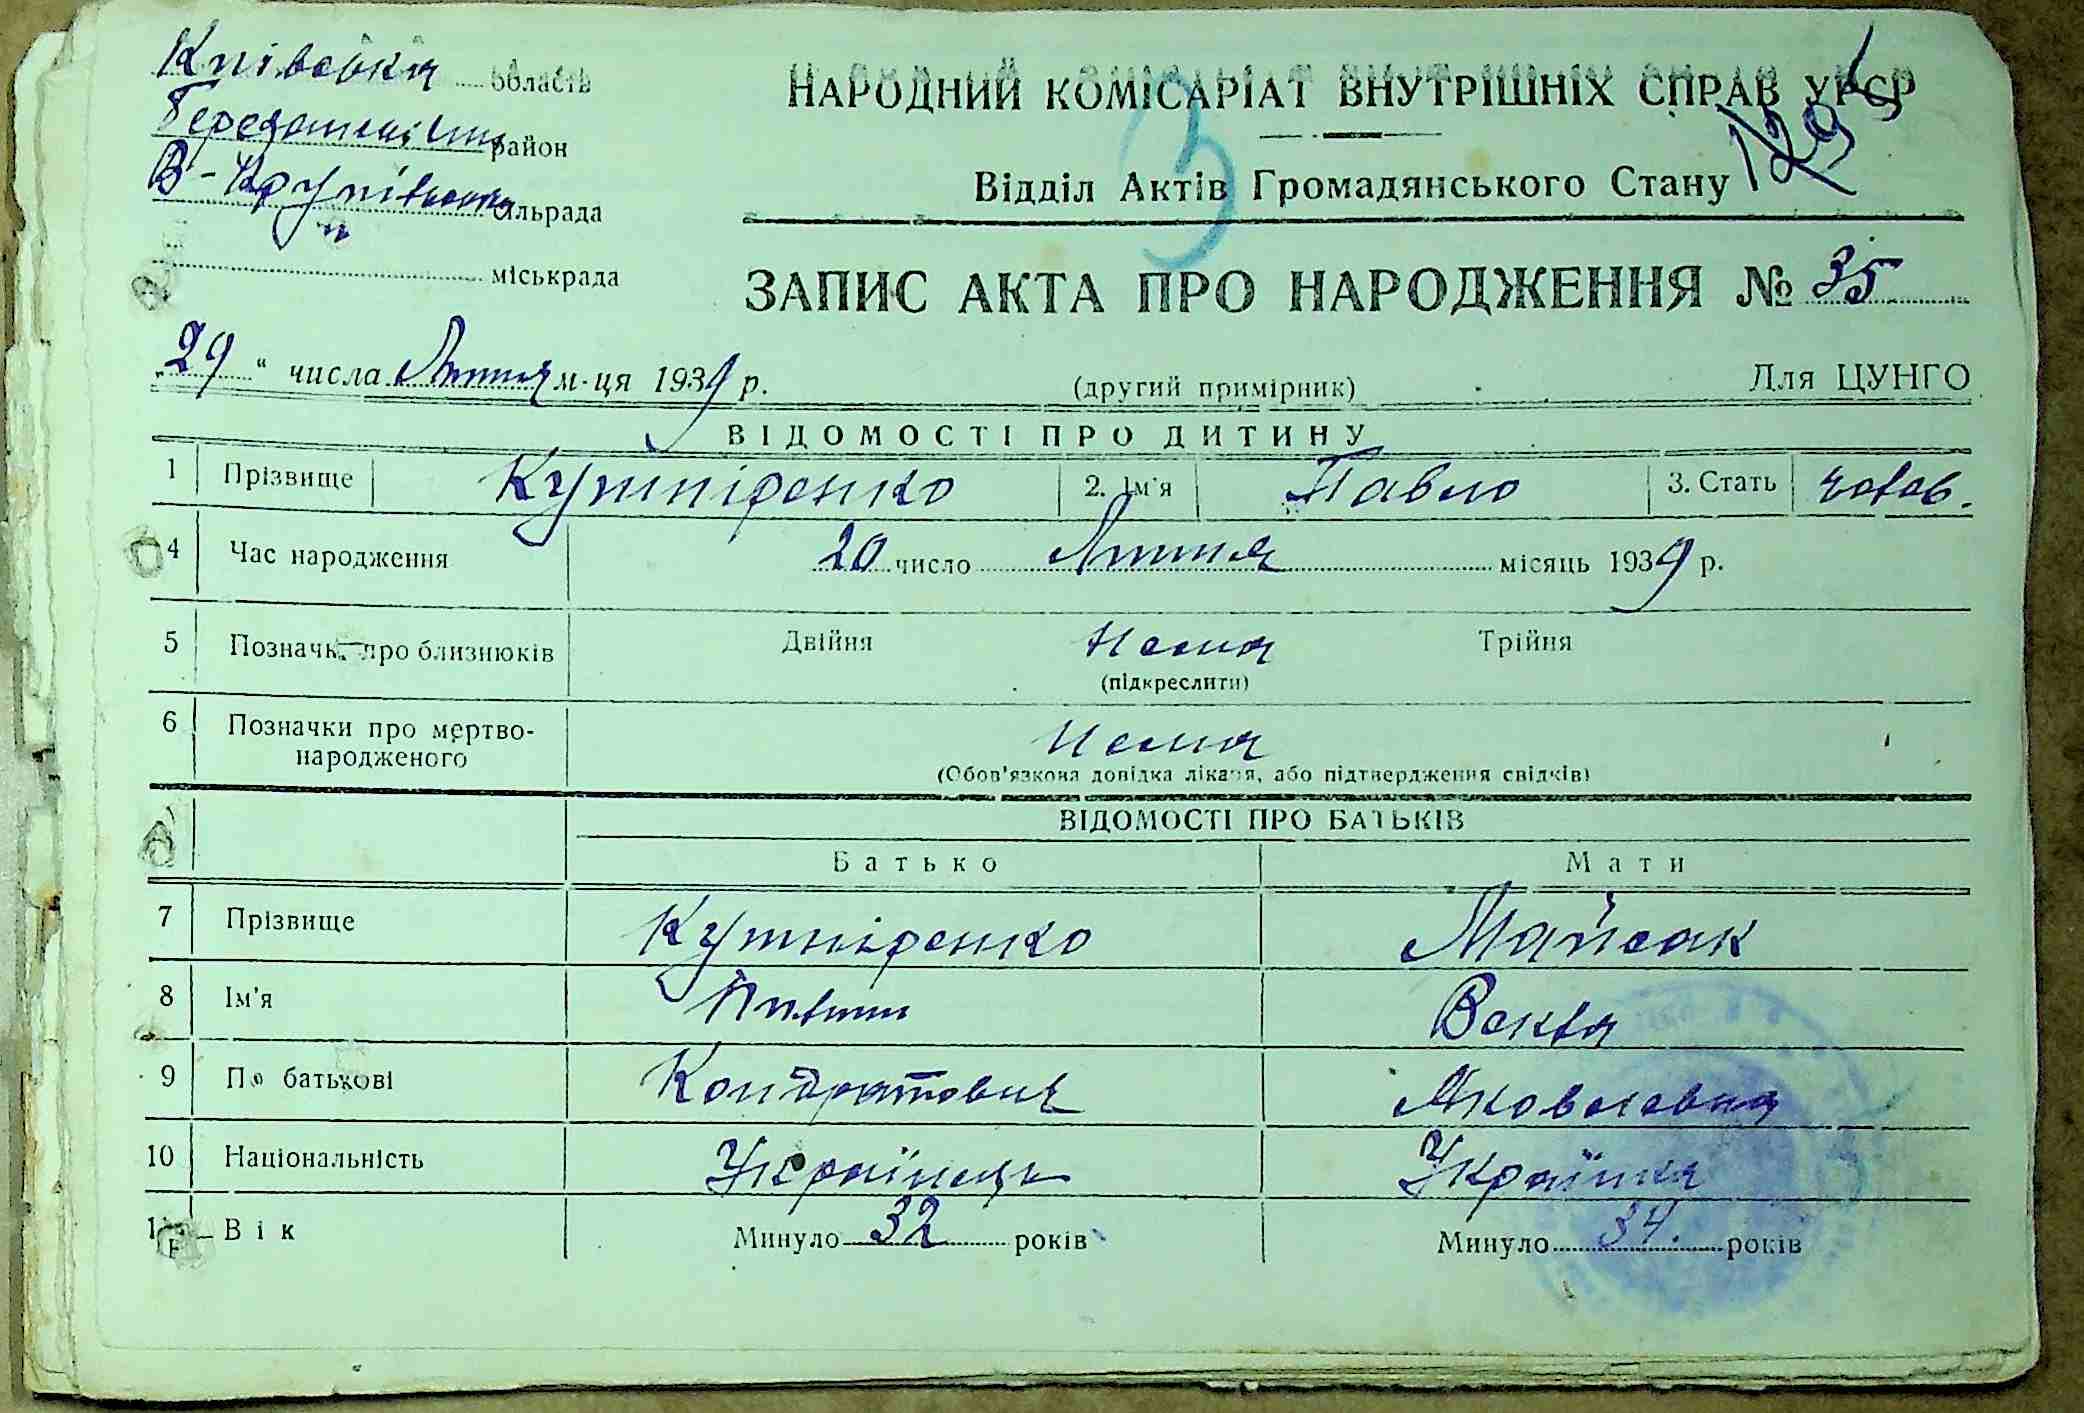 Київська область
НАРОДНИЙ КОМІСАРІАТ ВНУТРІШНІХ СПРАВ УРСР
район
Відділ Актів Громадянського Стану
В-Крупівська сільрада
міськрада
3
ЗАПИС АКТА ПРО НАРОДЖЕННЯ № 35
„29“ числа Липня м-ця 1939 р. (другий примірник) Для ЦУНГО
ВІДОМОСТІ ПРО ДИТИНУ
1 Прізвище Кутніренко 2. Ім'я Павло 3. Стать чолов.
4 Час народження 20 число Липня місяць 1939 р.
5 Позначк. про близнюків Двійня Нема Трійня
(підкреслити)
6 Позначки про мертво-
народженого Нема
(Обов'язкова довідка лікаря, або підтвердження свідків)
ВІДОМОСТІ ПРО БАТЬКІВ
Батько Мати
7 Прізвище Кутніренко Майсак
8 Ім'я Векла
9 По батькові Кондратович Яковлевна
10 Національність Українець Українка
11 Вік Минуло 32 років Минуло 34. років